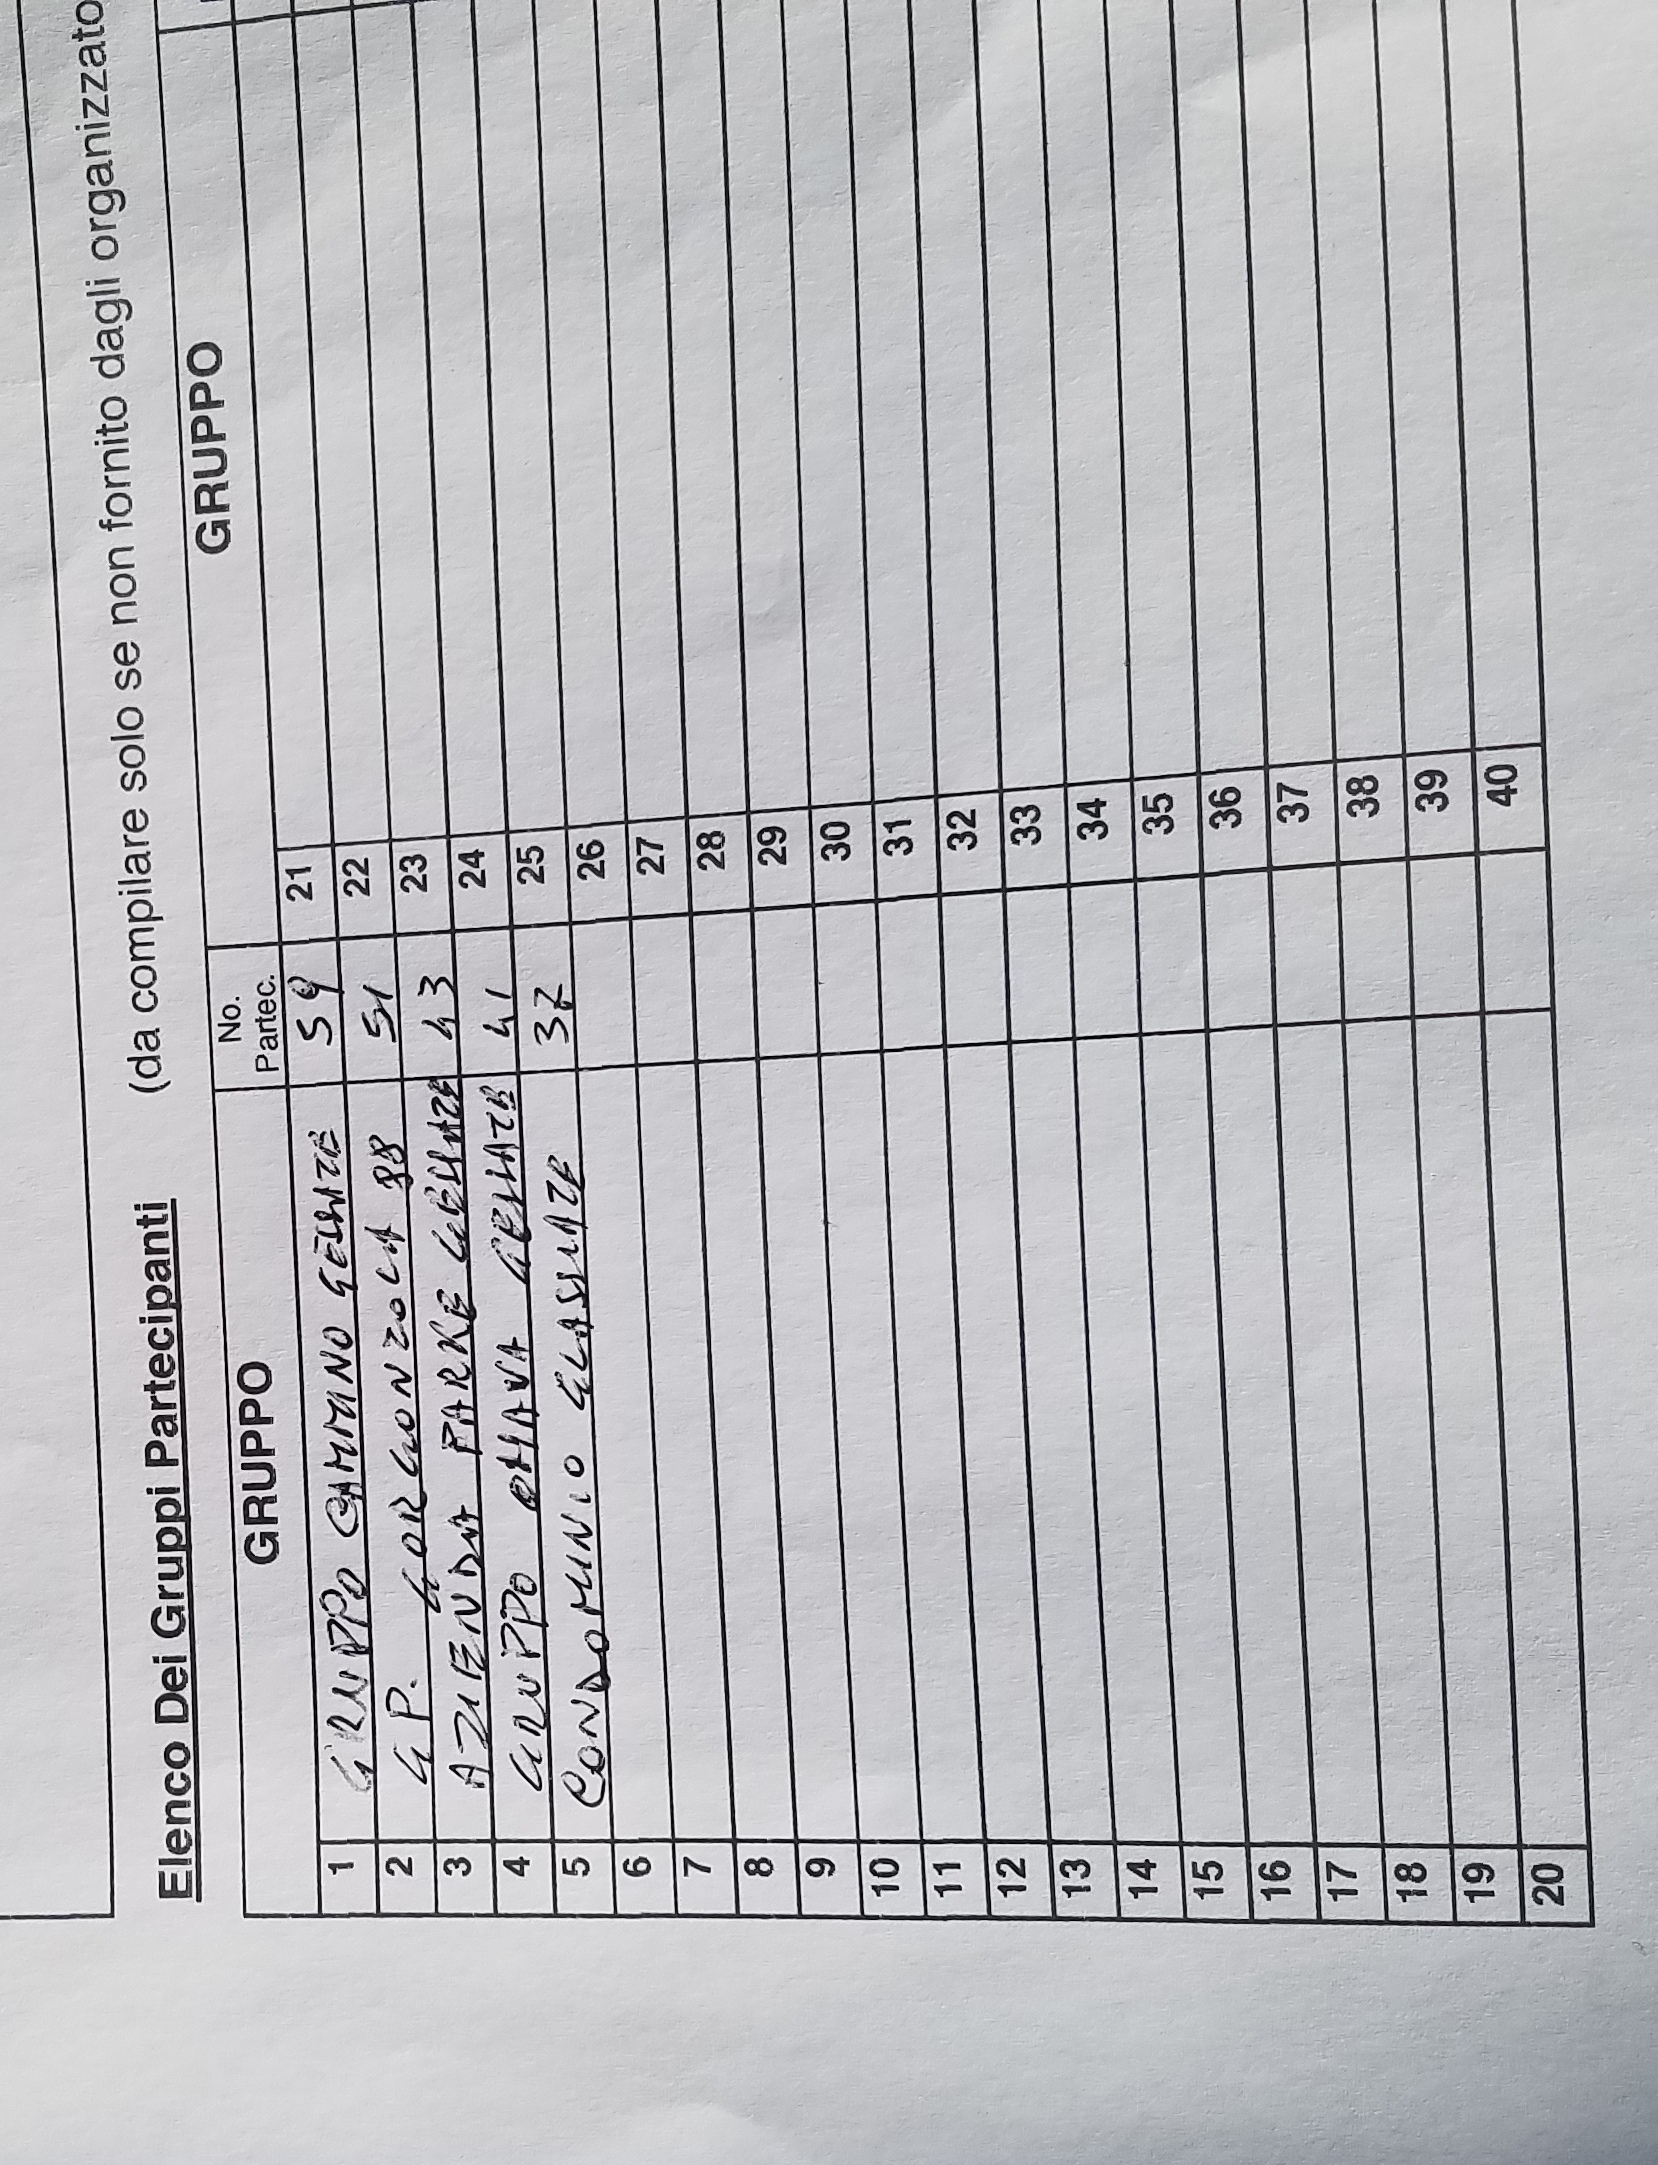 Elenco Dei Gruppi Partecipanti (da compilare solo se non fornito dagli organizzato
GRUPPO No. Partec. GRUPPO
1 GRUPPO CAMMINO GESSATE 59 21
2 G.P. GORGONZOLA 88 51 22
3 AZIENDA PARKE GESSATE 43 23
4 GRUPPO GESSATE 41 24
5 CONDOMINIO 37 25
6 26
7 27
8 28
9 29
10 30
11 31
12 32
13 33
14 34
15 35
16 36
17 37
18 38
19 39
20 40